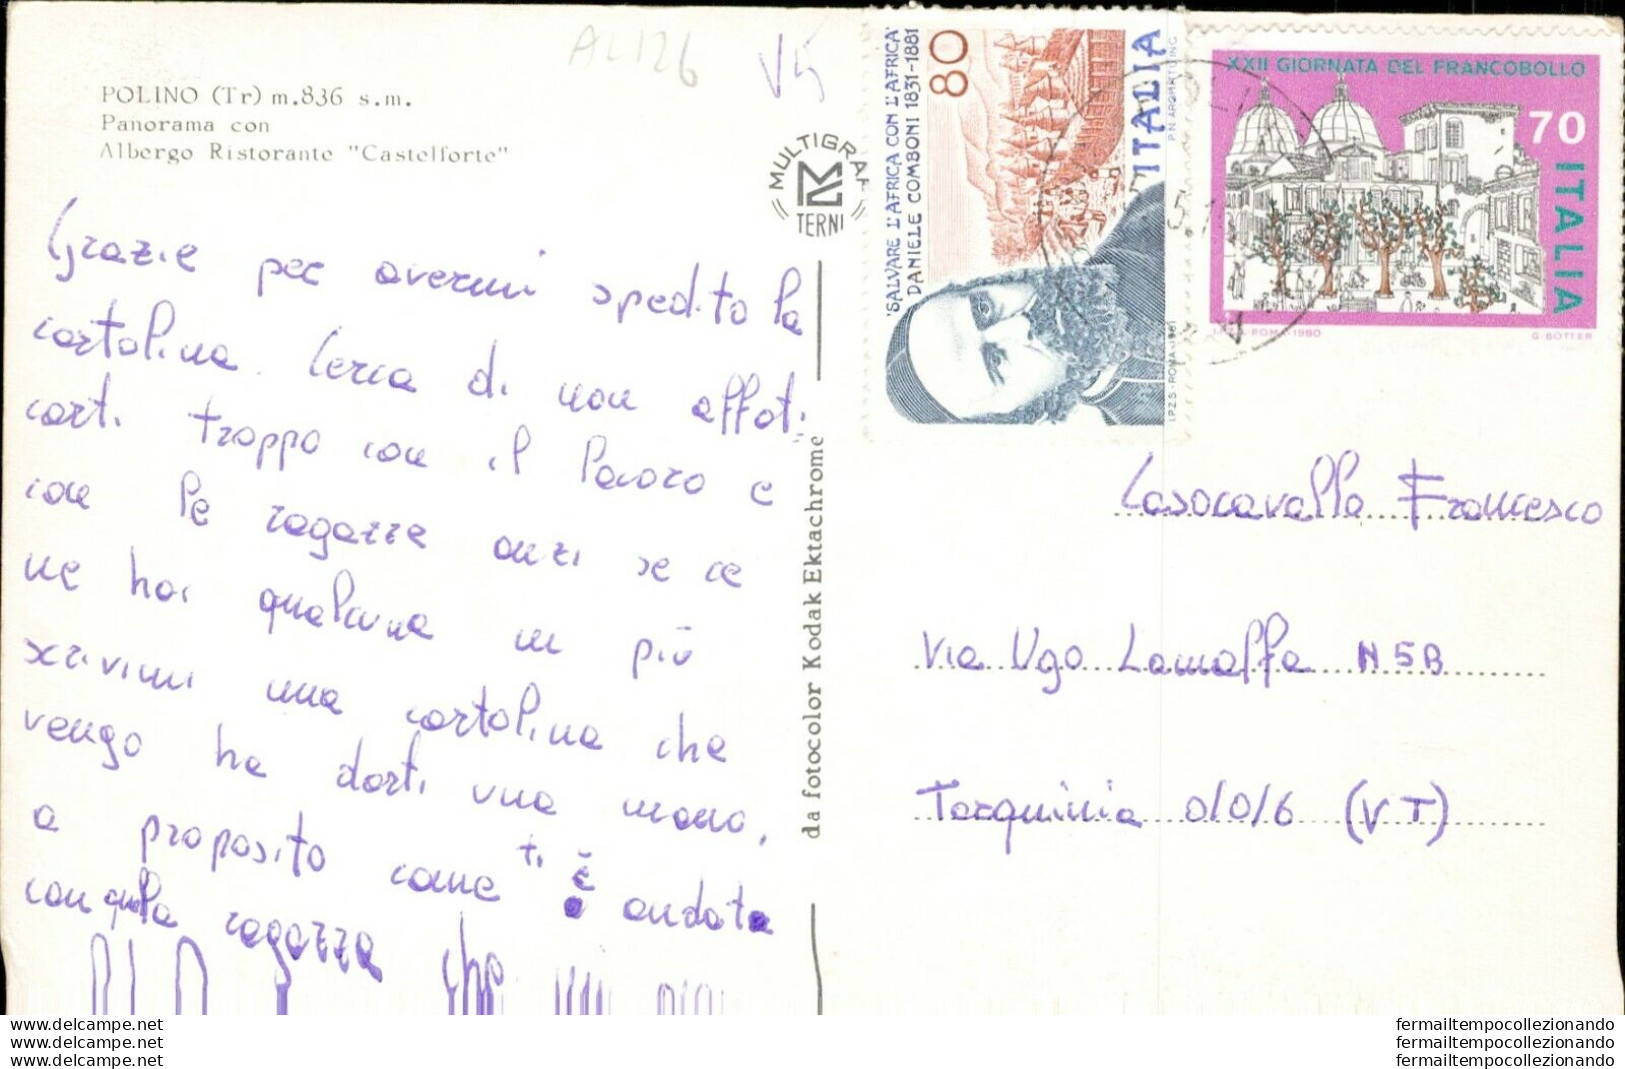 AL126
V5
POLINO (Tr) m.836 s.m.
Panorama con
Albergo Ristorante "Castelforte"
MULTIGRAF
TERNI
"SALVARE L'AFRICA CON L'AFRICA"
DANIELE COMBONI 1831-1881
80
ITALIA
P.N. ARQHARTU INC.
I.P.Z.S.-ROMA-1981
XXII GIORNATA DEL FRANCOBOLLO
70
ITALIA
ROMA-1980
G. BOTTER
Grazie per avermi spedito la
cartolina. Cerca di non affati
carti troppo con il lavoro e
con le ragazze anzi se ce
ne hai qualcuna in più
scrivimi una cartolina che
vengo ha darti una mano,
a proposito come ti è andata
con quella ragazza che
da fotocolor Kodak Ektachrome
Casocavalla Francesco
Via Ugo Lamalfa N 5B
Tarquinia 01016 (VT)
www.delcampe.net
www.delcampe.net
www.delcampe.net
fermailtempocollezionando
fermailtempocollezionando
fermailtempocollezionando